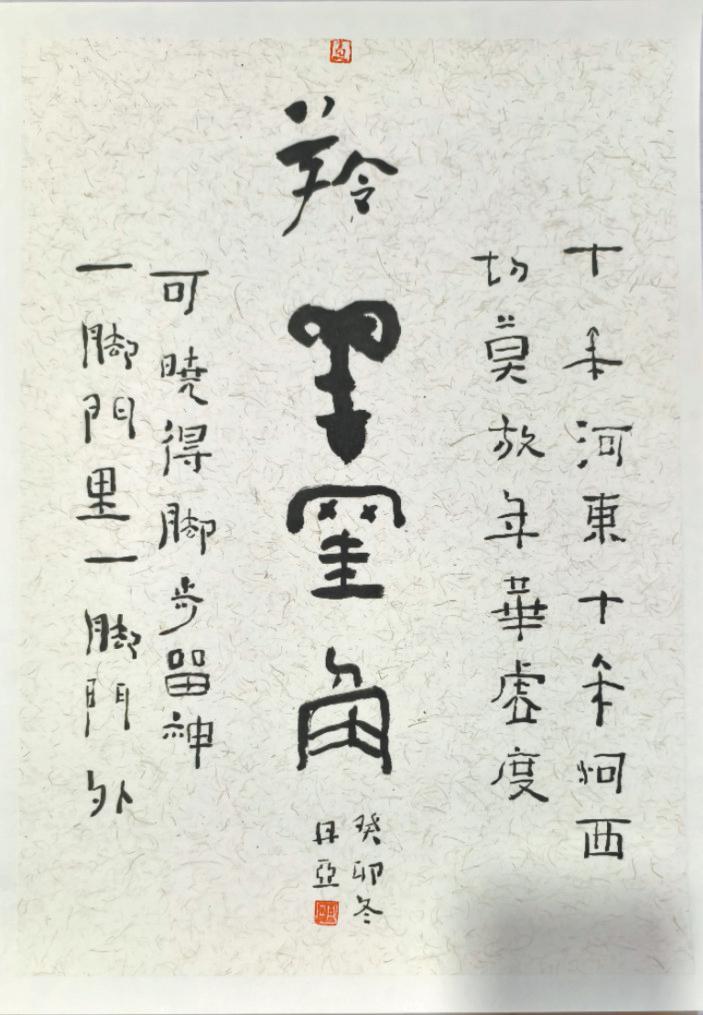 十年河東十年河西
切莫放年華虛度
羚羊罣角
癸卯冬
亞
可曉得脚步留神
一脚門里一脚門外